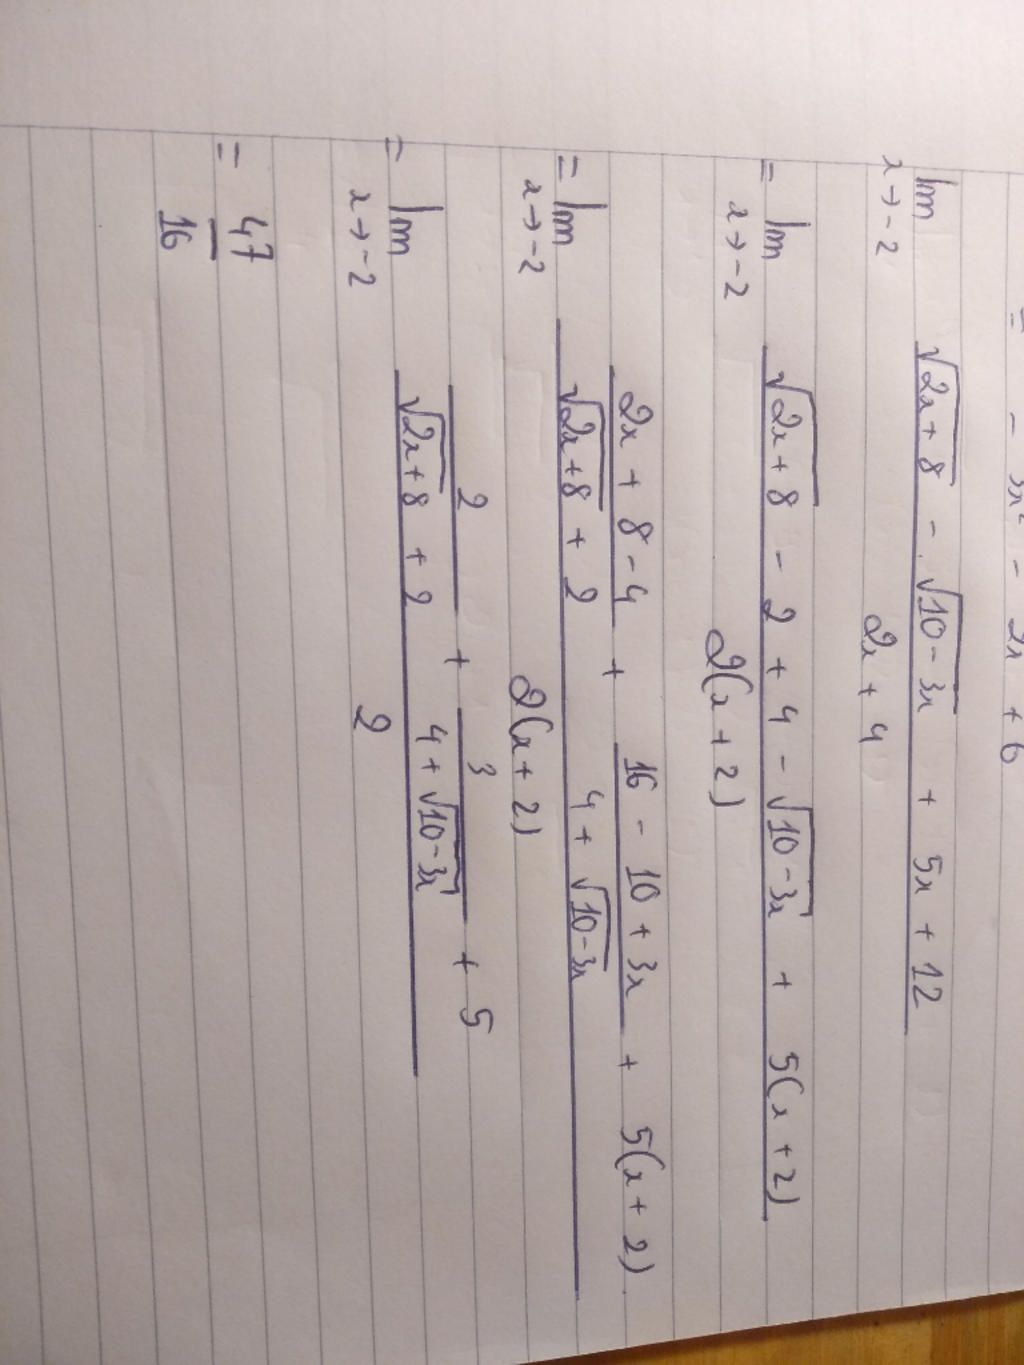 = - 3x² - 2x + 6
lim x→-2 (√(2x+8) - √(10-3x) + 5x + 12) / (2x + 4)
= lim x→-2 (√(2x+8) - 2 + 4 - √(10-3x) + 5(x+2)) / (2(x+2))
= lim x→-2 ((2x+8-4)/(√(2x+8) + 2) + (16 - 10 + 3x)/(4 + √(10-3x)) + 5(x+2)) / (2(x+2))
= lim x→-2 (2/(√(2x+8) + 2) + 3/(4 + √(10-3x)) + 5) / 2
= 47/16